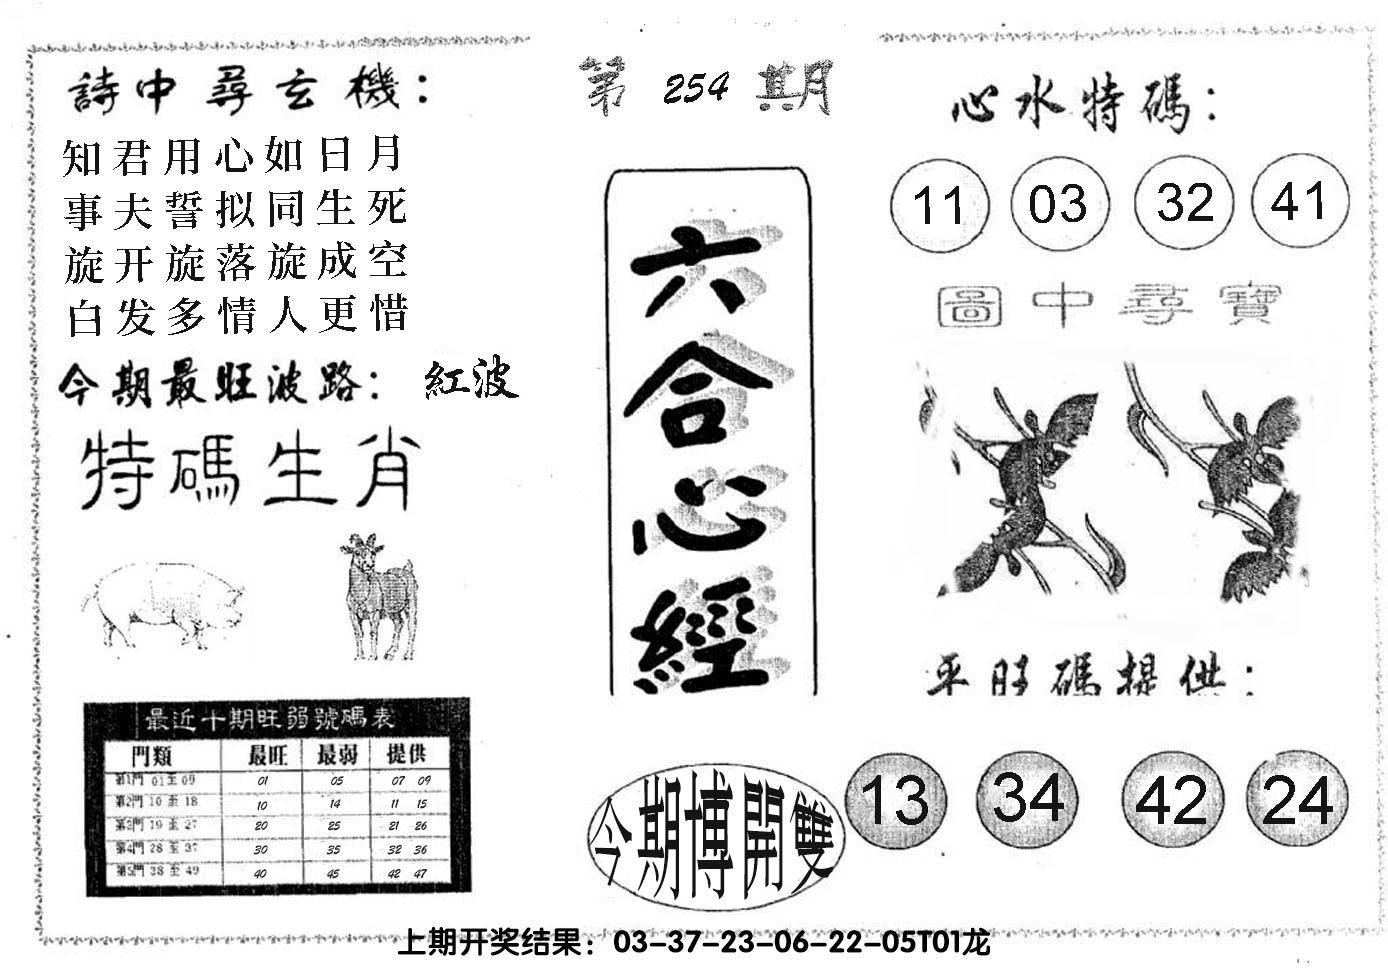 詩中尋玄機：
知君用心如日月
事夫誓拟同生死
旋开旋落旋成空
白发多情人更惜
今期最旺波路：紅波
特碼生肖
最近十期旺弱號碼表
門類 最旺 最弱 提供
第1門 01至09 01 05 07 09
第2門 10至18 10 14 11 15
第3門 19至27 20 25 21 26
第4門 28至37 30 35 32 36
第5門 38至49 40 45 42 47
第254期
六合心經
今期博開雙
心水特碼：
11 03 32 41
圖中尋寶
平旺碼提供：
13 34 42 24
上期开奖结果：03-37-23-06-22-05T01龙